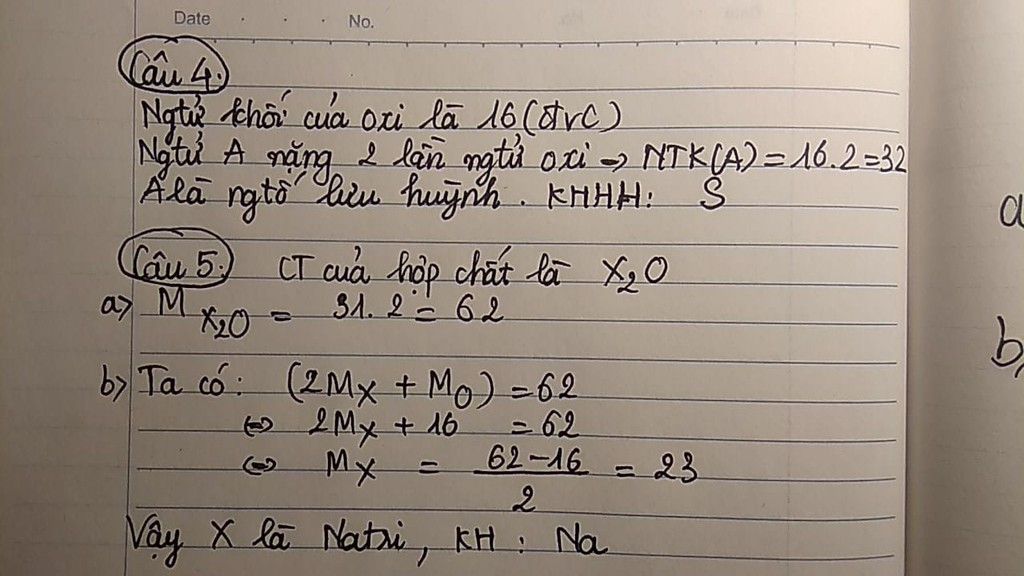 Date . . . No.
Câu 4.
Ngtử khối của oxi là 16 (đvC)
Ngtử A nặng 2 lần ngtử oxi → NTK(A) = 16.2 = 32
A là ngtố lưu huỳnh. KHHH: S
Câu 5. CT của hợp chất là X₂O
a) M X₂O = 31.2 = 62
b) Ta có: (2Mx + MO) = 62
⇔ 2Mx + 16 = 62
⇔ Mx = (62 - 16)/2 = 23
Vậy X là Natri, KH: Na
a
b)